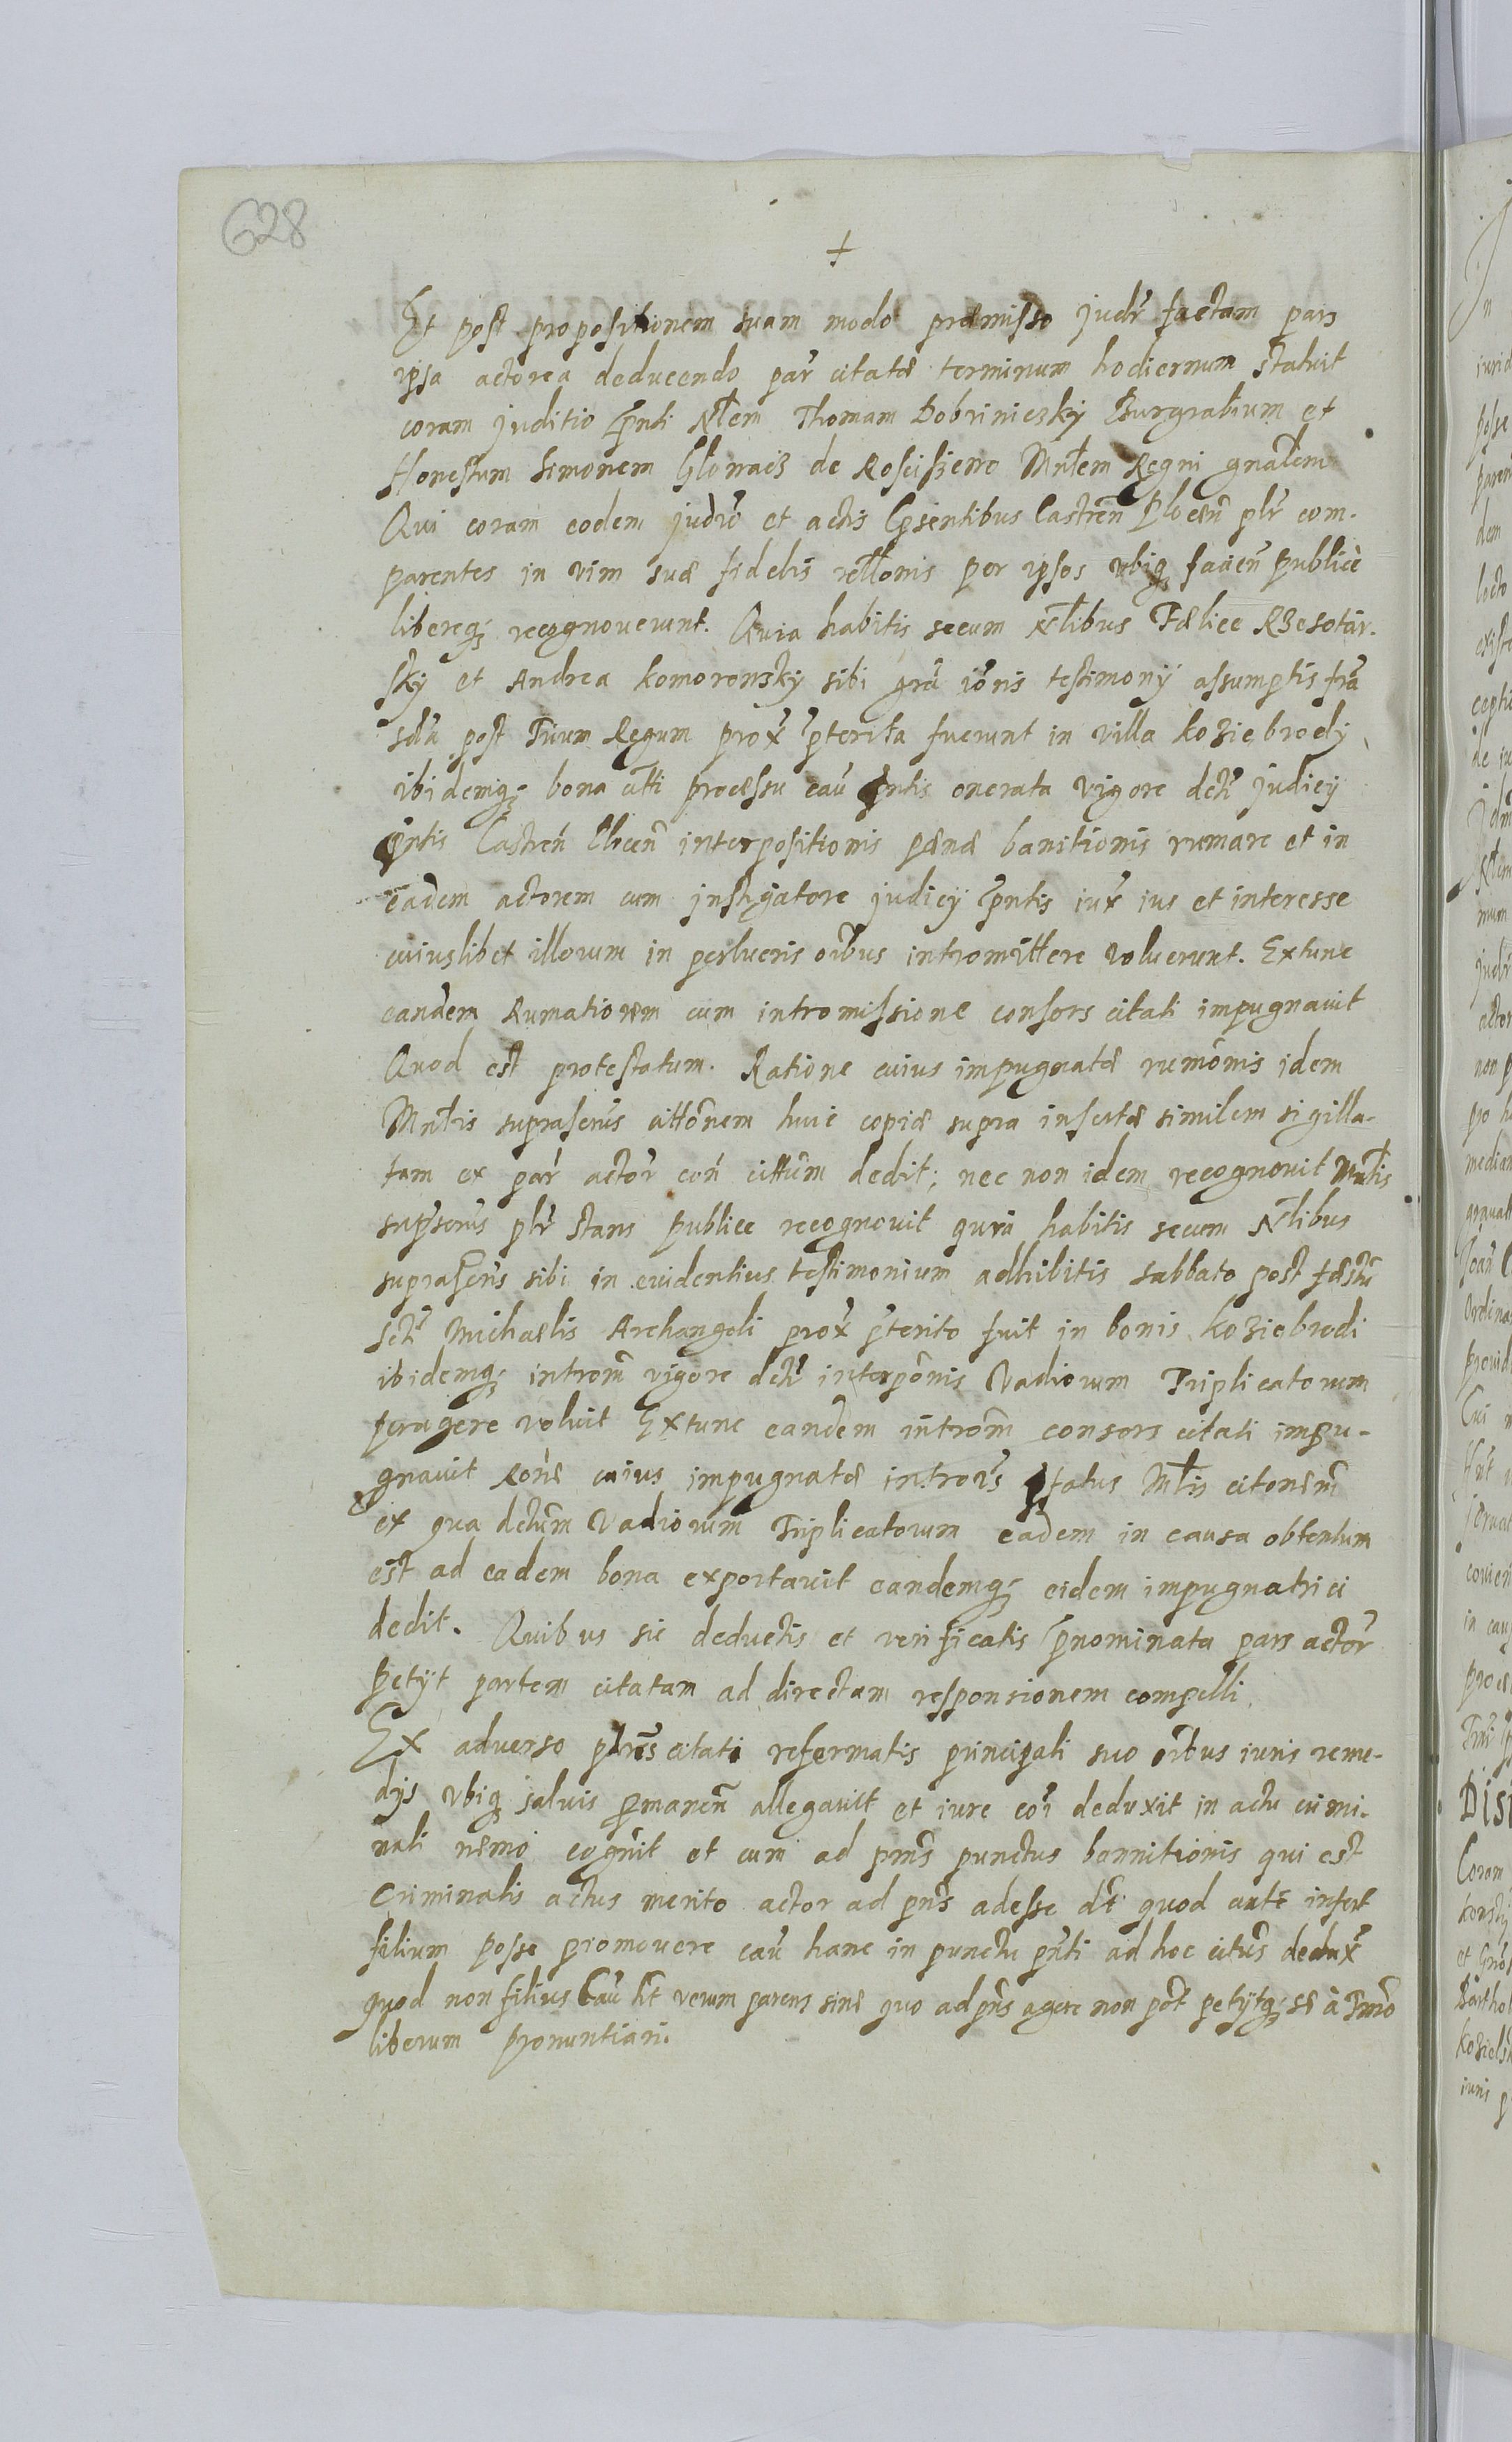 628
+
Et post propositionem suam modo præmisso judr̃ factam pars
ipsa actorea deducendo par̃ citatæ terminum hodiernum statuit
coram juditio p̃nti Nl̃em Thomam Dobriniczky Burgrabium et
Honestum Simonem Glonacz de Rosciszewo Mnl̃em Regni gnãlem
Qui coram eodem judiõ et actis p̃sentibus Castreñ Ploceñ pl̃r com-
parentes in vim suæ fidelis rel̃lonis per ipsos ubiq; facieñ publicè
libereq; recognoverunt. Quia habitis secum Nl̃ibus Fælice Rzeszotar-
sky et Andrea Komorowsky sibi grã iõris testimonÿ assumptis fr̃ia
scd̃a post Fm̃um Regum prox̃ p̃terita fuerunt in villa Koziebrody
ibidemq; bona citti processu caũ p̃ntis onerata vigore dctĩ judicÿ
p̃ntis Castreñ Ploceñ interpositionis pænæ banitionis rumare et in
eadem actorem cum jnstigatore judicÿ p̃ntis iux̃ ius et interesse
cuiuslibet illorum in perlucris oĩbus intromittere voluerunt. Extunc
eandem Rumationem cum intromissione consors citati impugnauit
Quod est protestatum. Ratione cuius impugnatæ rumõnis idem
Mnl̃is suprascr̃is cittõnem huic copiæ supra insertæ similem sigilla-
tam ex par̃ actor̃ coñ cittũm dedit; nec non idem recognouit Mnl̃is
supscr̃is pl̃r stans publice recognouit quia habitis secum Nl̃ibus
suprascr̃is sibi in euidentius testimonium adhibitis sabbato post fæstũ
sctĩ Michaelis Archangeli prox̃ p̃terito fuit in bonis Koziebrodi
ibidemq; introm̃ vigore dctĩ interpõnis Vadiorum Triplicatorum
peragere voluit Extunc eandem introm̃ consors citati impu-
gnauit Rõne cuius impugnatæ introĩs p̃fatus Ml̃is citonẽm
ex qua dctũm Vadiorum Triplicatorum eadem in causa obtentum
est ad eadem bona exportavit eandemq; eidem impugnatrici
dedit. Quibus sic deductis et verificatis p̃nominata pars actor̃
petÿt partem citatam ad directam responsionem compelli.
Ex adverso pl̃ris citati reformatis principali suo oĩbus iuris reme-
dÿs ubiq; saluis p̃maneñ allegauit et iure coĩ deduxit in actu crimi-
nali nemo cogñit et cum ad pñs punctus bannitionis qui est
Criminalis actus merito actor ad pñs adesse dt̃ quod aut̃ infert
filium posse promouere caũ hanc in punctu pñti ad hoc citũs dedux̃
quod non filius Caũ ht̃ verum parens sinè quo ad pñs agere non põt petÿtq; sè à Tmĩo
liberum pronuntiari.